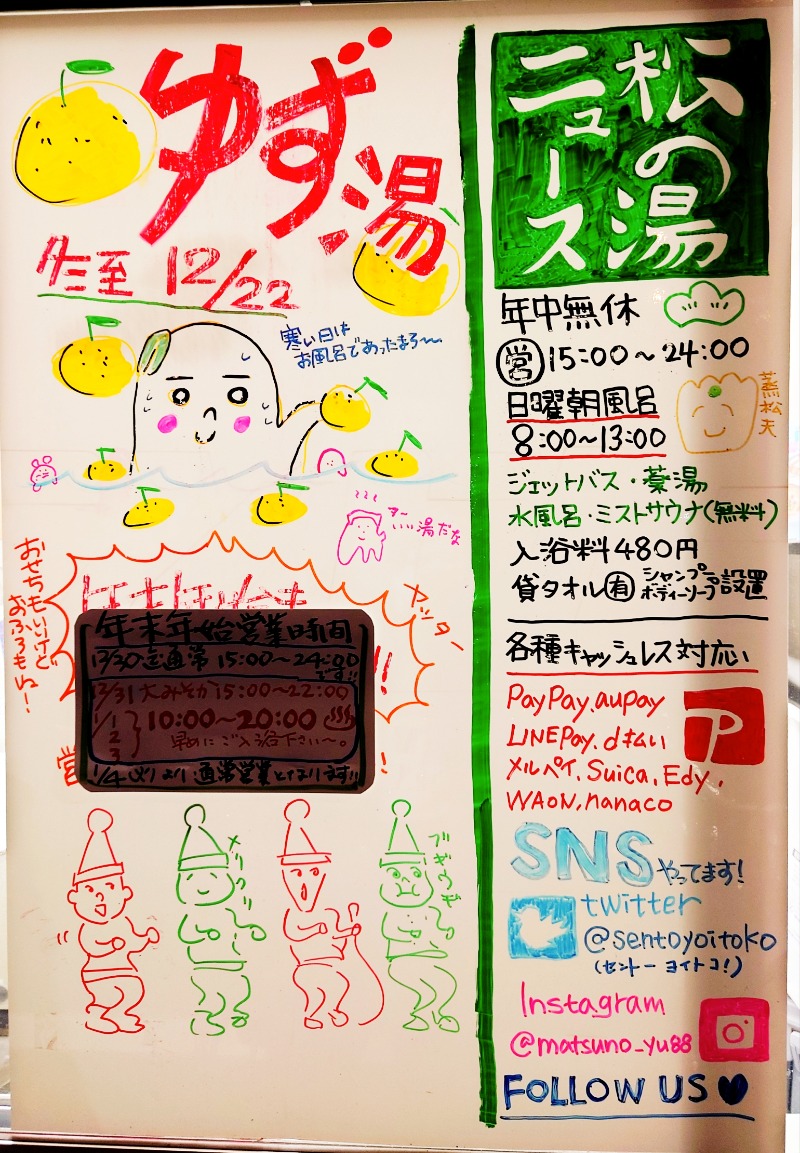 ゆず湯
冬至 12/22
寒い日は
お風呂であったまろ〜
いい湯だな
おせちもいいけど
おふろもね!
ヤッター
年末年始営業時間
12/30迄通常 15:00〜24:00
です!!
12/31 大みそか 15:00〜22:00
1/1
2
3
10:00〜20:00
早めにご入浴下さい〜。
1/4(火)より通常営業となります!!
メリクリ
松の湯
ニュース
年中無休
営 15:00〜24:00
日曜朝風呂
8:00〜13:00
蒸松夫
ジェットバス・薬湯
水風呂・ミストサウナ(無料)
入浴料480円
貸タオル有 シャンプー
ボディーソープ 設置
各種キャッシュレス対応い
PayPay.aupay
LINEPay.d払い
メルペイ.Suica.Edy.
WAON.nanaco
P
SNSやってます!
twitter
@sentoyoitoko
(セントーヨイトコ!)
Instagram
@matsuno_yu88
FOLLOW US